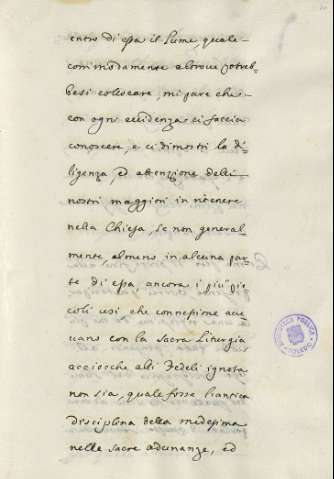 entro di essa il lume, quale-
commodamente altrove potreb-
besi collocare, mi pare che-
con ogni evidenza ci faccia
conoscere, e ci dimostri la di-
ligenza, ed attenzione delli-
nostri maggiori in ritenere
nella Chiesa, se non general-
mente, almeno in alcuna par-
te di essa, ancora i più pic-
coli usi che connessione av-
vano con la sacra Liturgia
acciocche alli Fedeli ignota
non sia, quale fosse l'antica
disciplina della medesima
nelle sacre adunanze, ed
BIBLIOTECA PUBLICA
TOLEDO